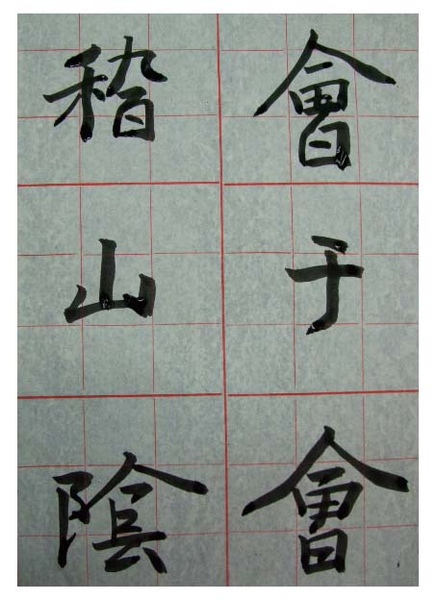 會于會
稽山陰